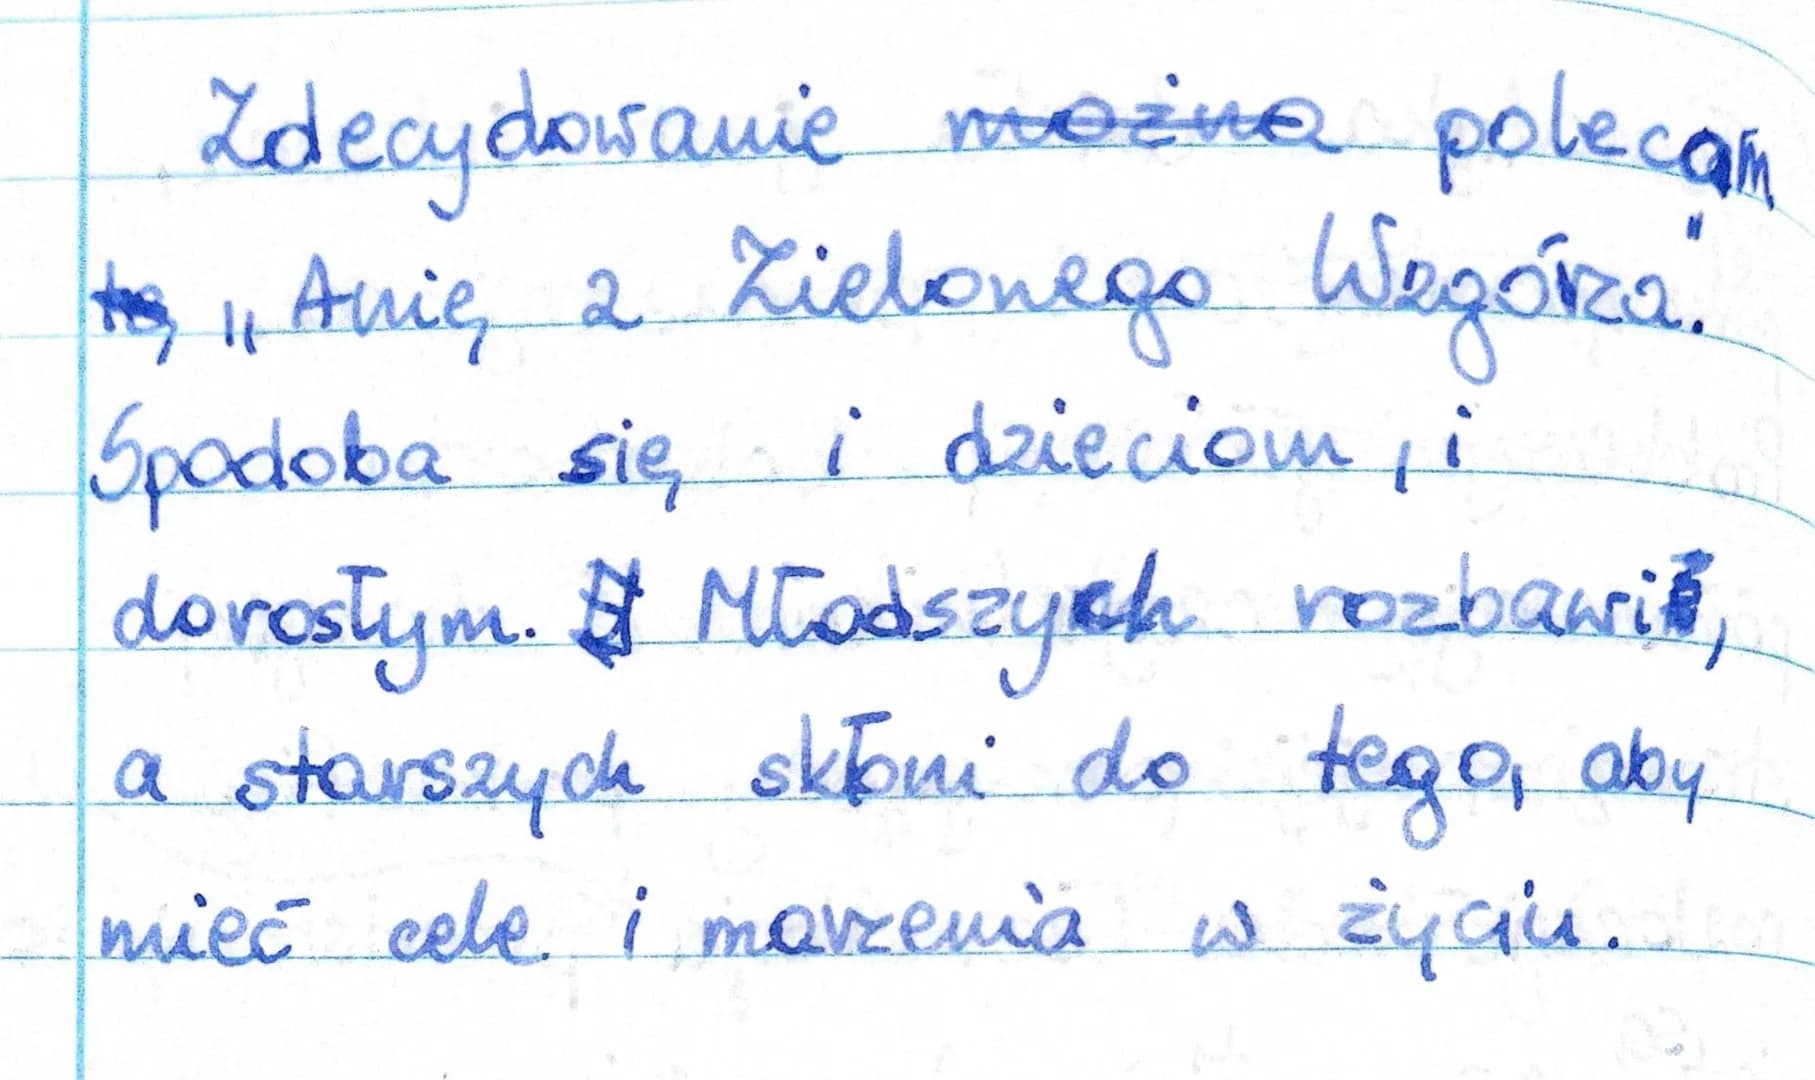 Zdecydowanie można polecam
tę „Anię z Zielonego Wzgórza."
Spodoba się i dzieciom, i
dorosłym. Młodszych rozbawi,
a starszych skłoni do tego, aby
mieć cele i marzenia w życiu.